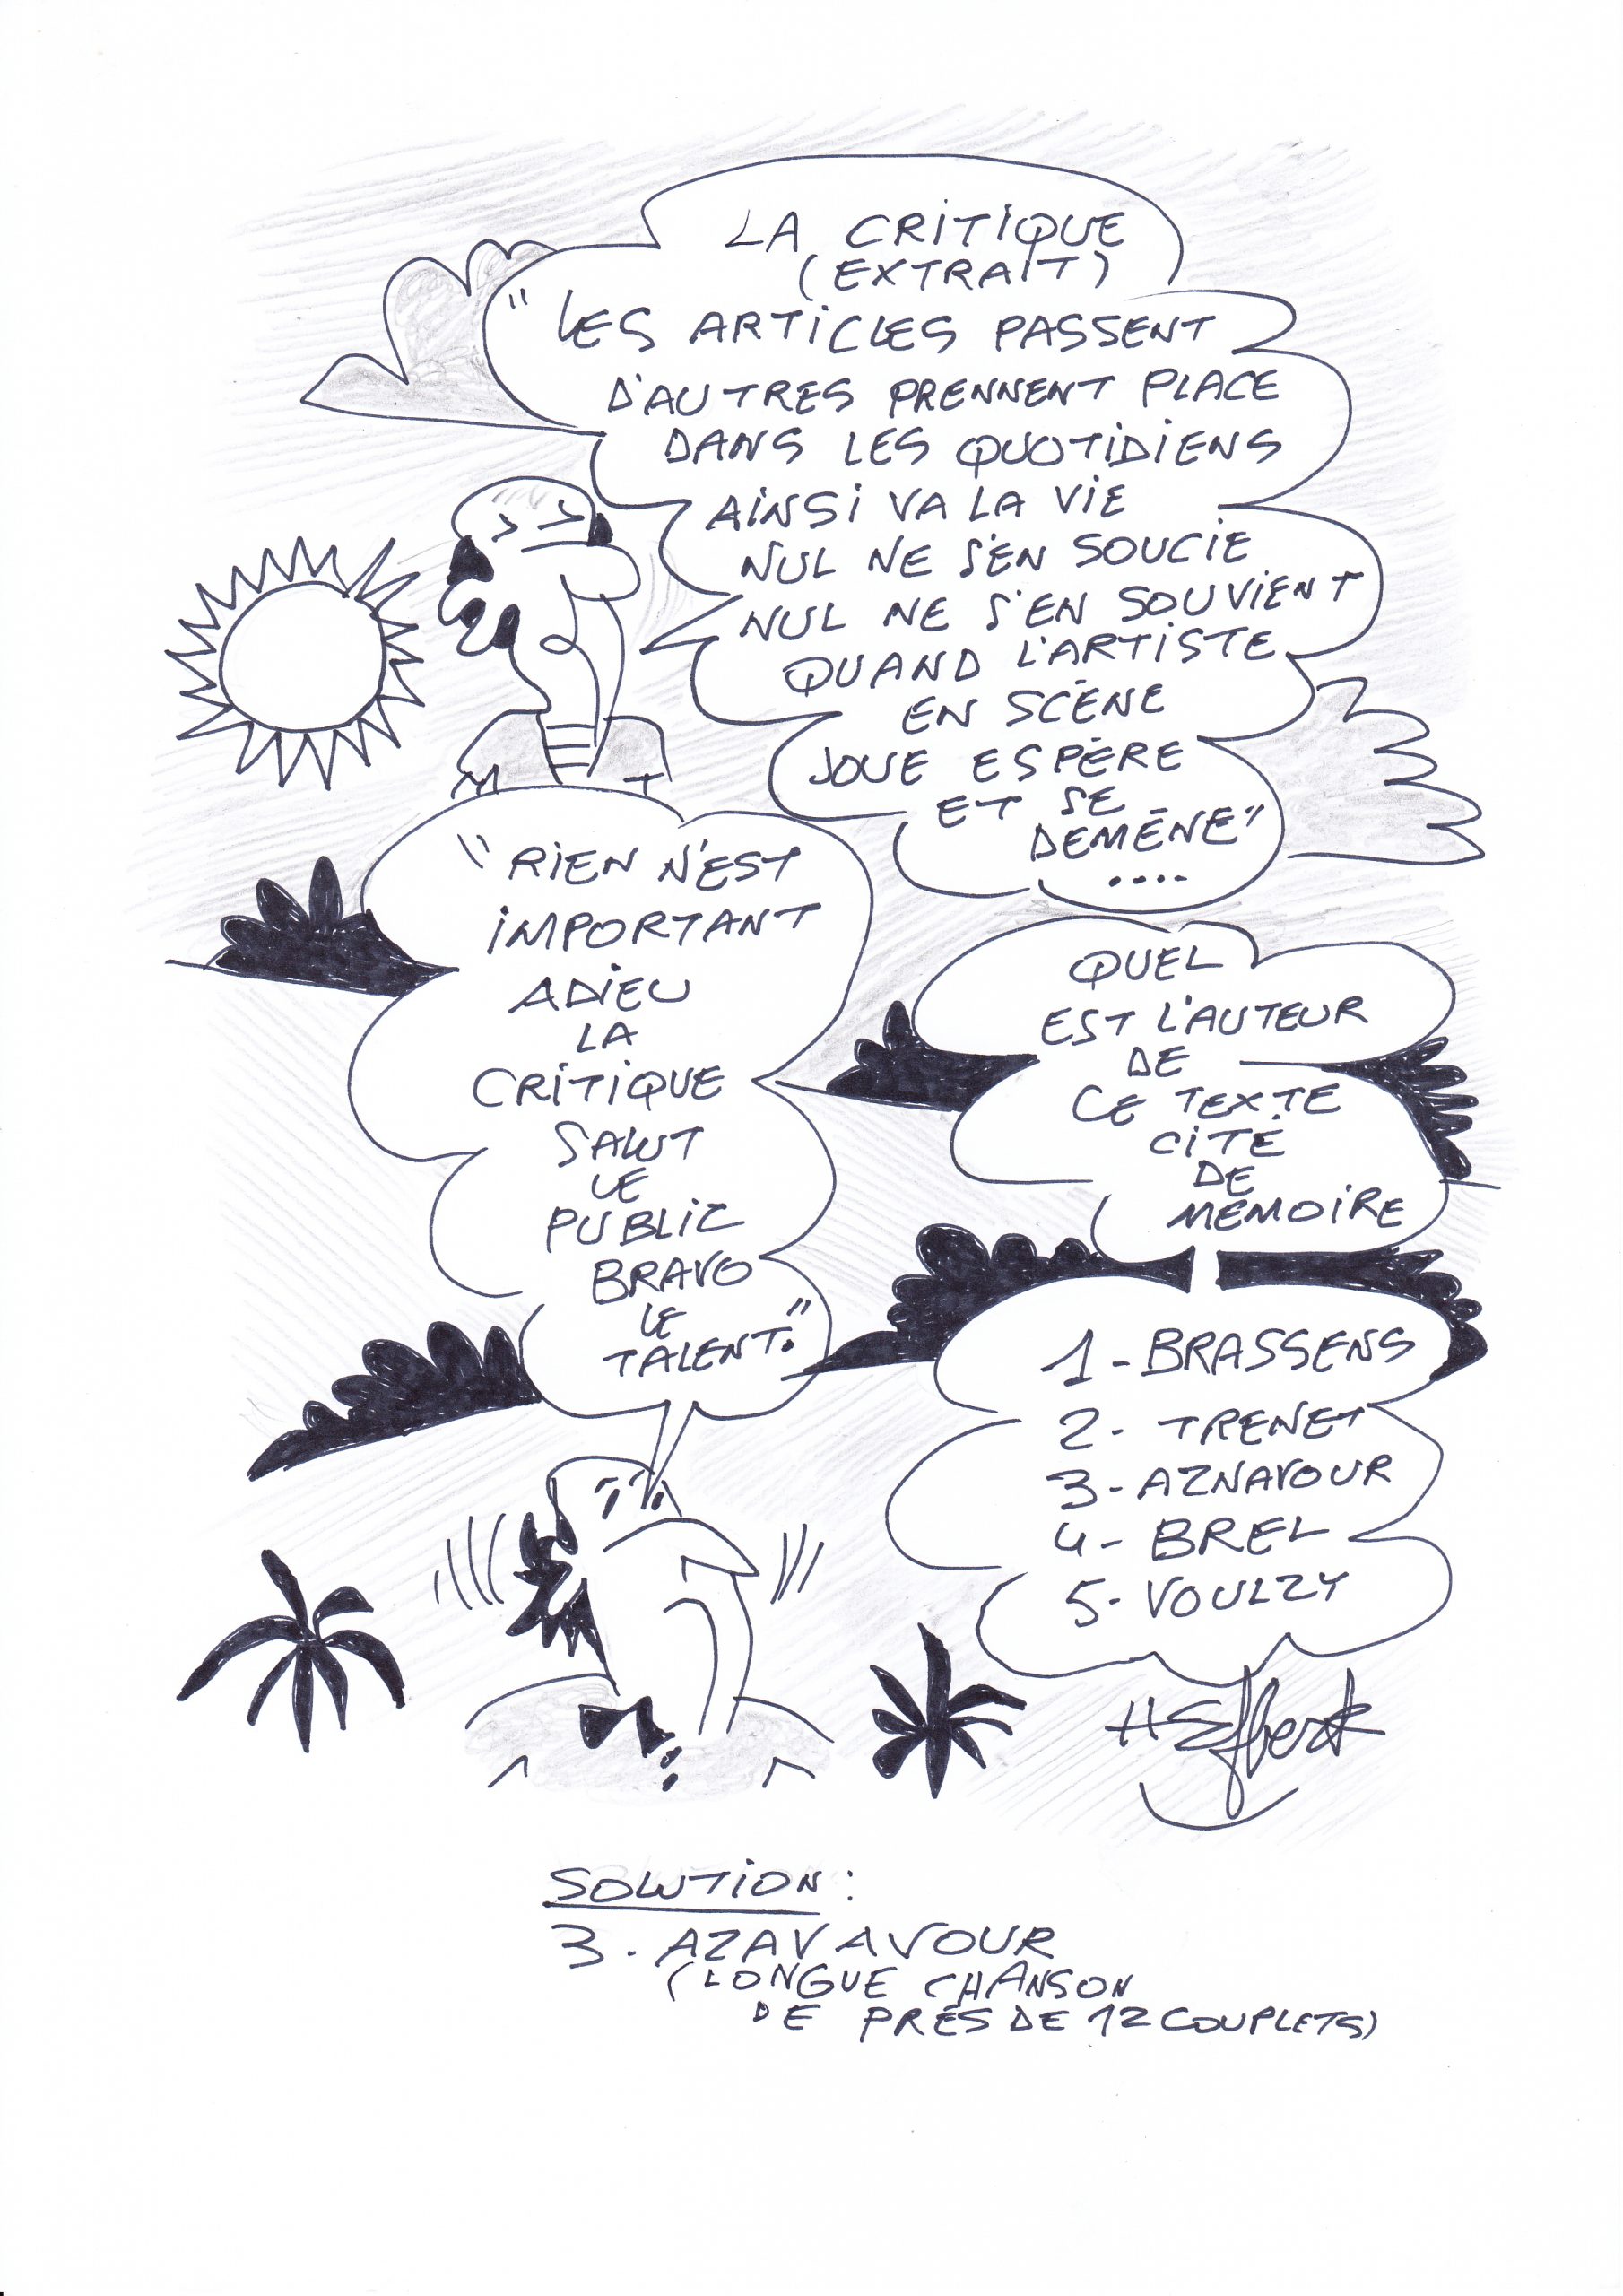 LA CRITIQUE
(EXTRAIT)
"LES ARTICLES PASSENT
D'AUTRES PRENNENT PLACE
DANS LES QUOTIDIENS
AINSI VA LA VIE
NUL NE S'EN SOUCIE
NUL NE S'EN SOUVIENT
QUAND L'ARTISTE
EN SCÈNE
JOUE ESPÈRE
ET SE
DEMÈNE"
....
"RIEN N'EST
IMPORTANT
ADIEU
LA
CRITIQUE
SALUT
LE
PUBLIC
BRAVO
LE
TALENT."
QUEL
EST L'AUTEUR
DE
CE TEXTE
CITÉ
DE
MEMOIRE
1-BRASSENS
2-TRENET
3-AZNAVOUR
4-BREL
5-VOULZY
SOLUTION:
3.AZAVAVOUR
(LONGUE CHANSON
DE PRÈS DE 12 COUPLETS)